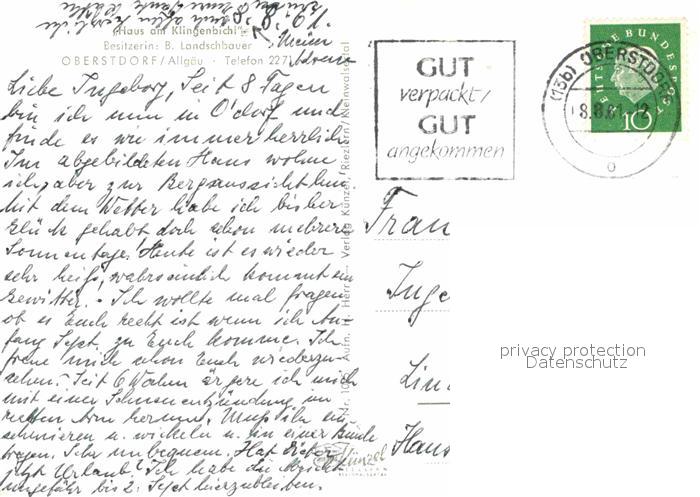 "Haus am Klingenbichl"
Besitzerin: B. Landschbauer
OBERSTDORF/Allgäu · Telefon 2271
8. 8. 61.
Meine
Adresse
Liebe Ingeborg, Seit 8 Tagen
bin ich nun in O'dorf und
finde es wie immer herrlich.
Im abgebildeten Haus wohne
ich, aber zur Bergaussicht hin.
Mit dem Wetter habe ich bisher
Glück gehabt doch schon mehrere
Sonnentage. Heute ist es wieder
sehr heiß, wahrscheinlich kommt ein
Gewitter. - Ich wollte mal fragen
ob es Euch recht ist wenn ich An-
fang Sept. zu Euch komme. Ich
freue mich schon Euch wiederzu-
sehen. - Seit 6 Wochen ärgere ich mich
mit einer Sehnenentzündung im
rechten Arm herum. Muß ihn ein
schmieren u. wickeln u. in einer Binde
tragen. Sehr unbequem. Hat
jetzt Urlaub? Ich habe die Absicht
ungefähr bis 2. Sept hierzubleiben.
Verlag Künzel, Riezlern/Kleinwalsertal
Künzel
GUT
verpackt/
GUT
angekommen
(13b) OBERSTDORF
8.8.61
DEUTSCHE BUNDESPOST
10
Frau
Inge
Lin
Haus
privacy protection
Datenschutz